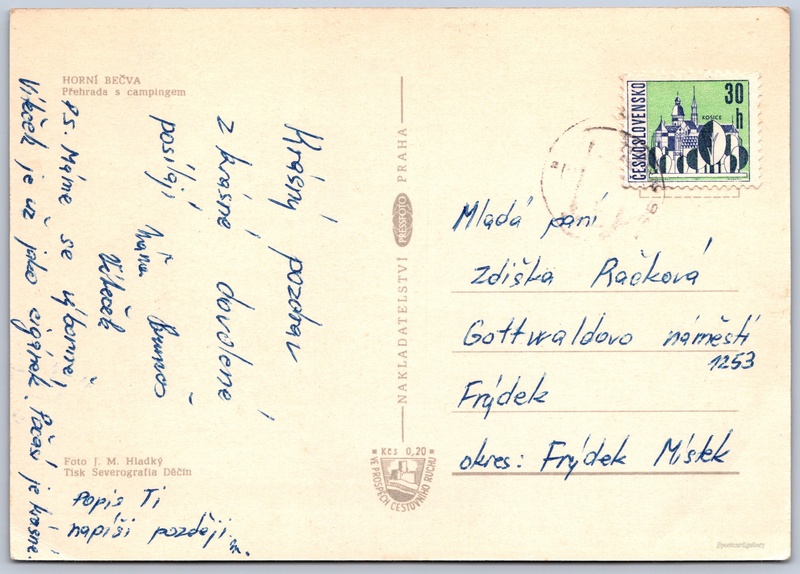 HORNÍ BEČVA
Přehrada s campingem
Krásný pozdrav
z krásné dovolené
posílají
Víteček
P.S. Máme se výborně,
Víteček je už jako cigánek. Počasí je krásné.
Popis Ti
napíši později.
Foto J. M. Hladký
Tisk Severografia Děčín
NAKLADATELSTVÍ PRESSFOTO PRAHA
Kčs 0,20
VE PROSPĚCH CESTOVNÍHO RUCHU
ČESKOSLOVENSKO
30 h
KOŠICE
Mladá paní
Zdiška Račková
Gottwaldovo náměstí
1253
Frýdek
okres: Frýdek Místek